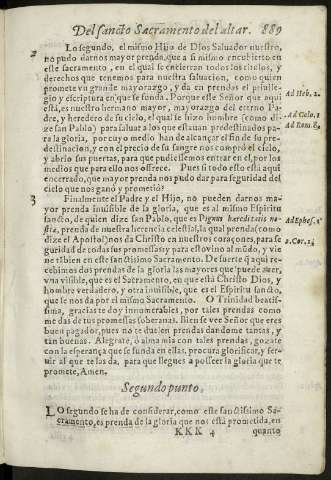 Del sancto Sacramento del altar. 889
2 Lo segundo, el mismo Hijo de Dios Saluador nuestro,
no pudo darnos mayor prenda, que a si mismo encubierto en
este sacramento, en el qual se encierran todos los titulos, y
derechos que tenemos para nuestra saluacion, como quien
promete vn grande mayorazgo, y da en prendas el priuile-
gio y escriptura en que se funda. Porque este Señor que aqui
está, es nuestro hermano mayor, mayorazgo del eterno Pa-
dre, y heredero de su cielo, el qual se hizo hombre (como di-
ze san Pablo) para saluar a los que estauan predestinados pa-
ra la gloria, por cuyo medio han de alcançar el fin de su pre-
destinacion, y con el precio de su sangre nos compró el cielo,
y abrio sus puertas, para que pudiessemos entrar en el, por los
medios que para ello nos offrece. Pues si todo esto está aqui
encerrado, que mayor prenda nos pudo dar para seguridad del
cielo que nos ganó y prometió?
Ad Heb. 2.
Ad Colo. 1
Ad Rom. 8.
3 Finalmente el Padre y el Hijo, no pueden darnos ma-
yor prenda inuisible de la gloria, que es al mismo Espiritu
sancto, de quien dize san Pablo, que es Pignus hereditatis no-
stræ, prenda de nuestra herencia celestial, la qual prenda (como
dize el Apostol) nos da Christo en nuestros coraçones, para se-
guridad de todas sus promessas: y para esto vino al mũdo, y vie-
ne tãbien en este sanctissimo Sacramento. De suerte q̃ aqui re-
cebimos dos prendas de la gloria las mayores que puede auer,
vna visible, que es el Sacramento, en que está Christo Dios, y
hombre verdadero, y otra inuisible, que es el Espiritu sancto,
que se nos da por el mismo Sacramento. O Trinidad beatis-
sima, gracias te doy innumerables, por tales prendas como
me das de tus promessas soberanas. Bien se vee Señor que eres
buen pagador, pues no te duelen prendas dandome tantas, y
tan buenas. Alegrate, ô alma mia con tales prendas, gozate
con la esperança que se funda en ellas, procura glorificar, y ser-
uir al que te las da, para que llegues a posseer la gloria que te
promete, Amen.
Ad Ephes. 1
2. Cor. 1
Segundo punto.
LO segundo se ha de considerar, como este sanctissimo Sa-
cramento, es prenda de la gloria que nos está prometida, en
KKK 4 quanto